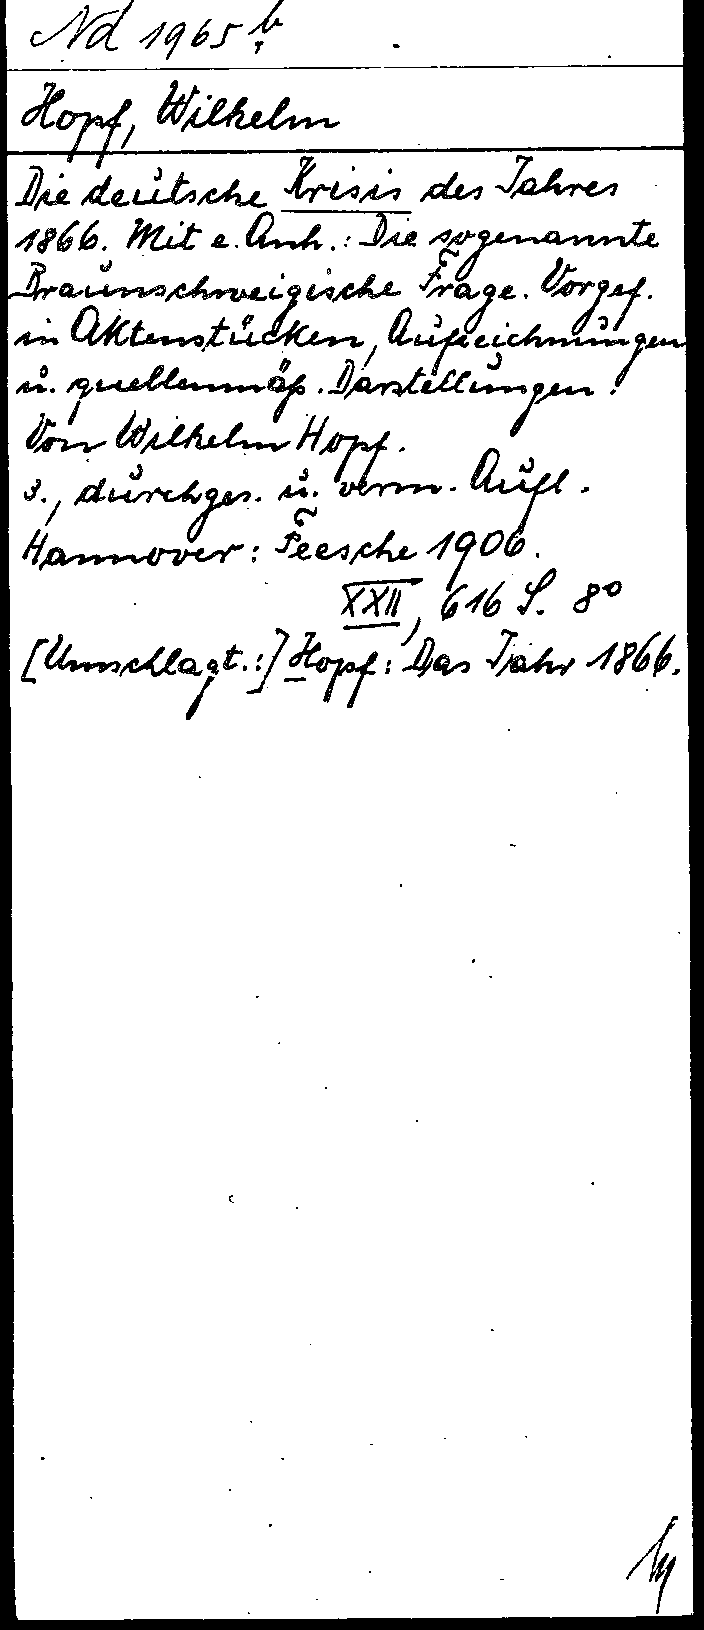 Nd 1965 b
Hopf, Wilhelm
Die deutsche Krisis des Jahres
1866. Mit e. Anh.: Die sogenannte
Braunschweigische Frage. Vorgef.
in Aktenstücken, Aufzeichnungen
u. quellenmäß. Darstellungen.
Von Wilhelm Hopf.
3., durchges. u. verm. Aufl.
Hannover: Feesche 1906.
XXII, 616 S. 8°
[Umschlagt.:] Hopf: Das Jahr 1866.